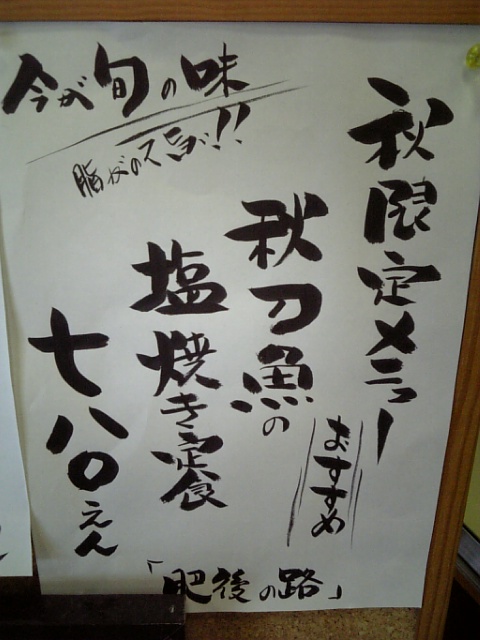 今が旬の味
脂がのってるョ!!
秋限定メニュー
おすすめ
秋刀魚の
塩焼き定食
七八〇えん
「肥後の路」